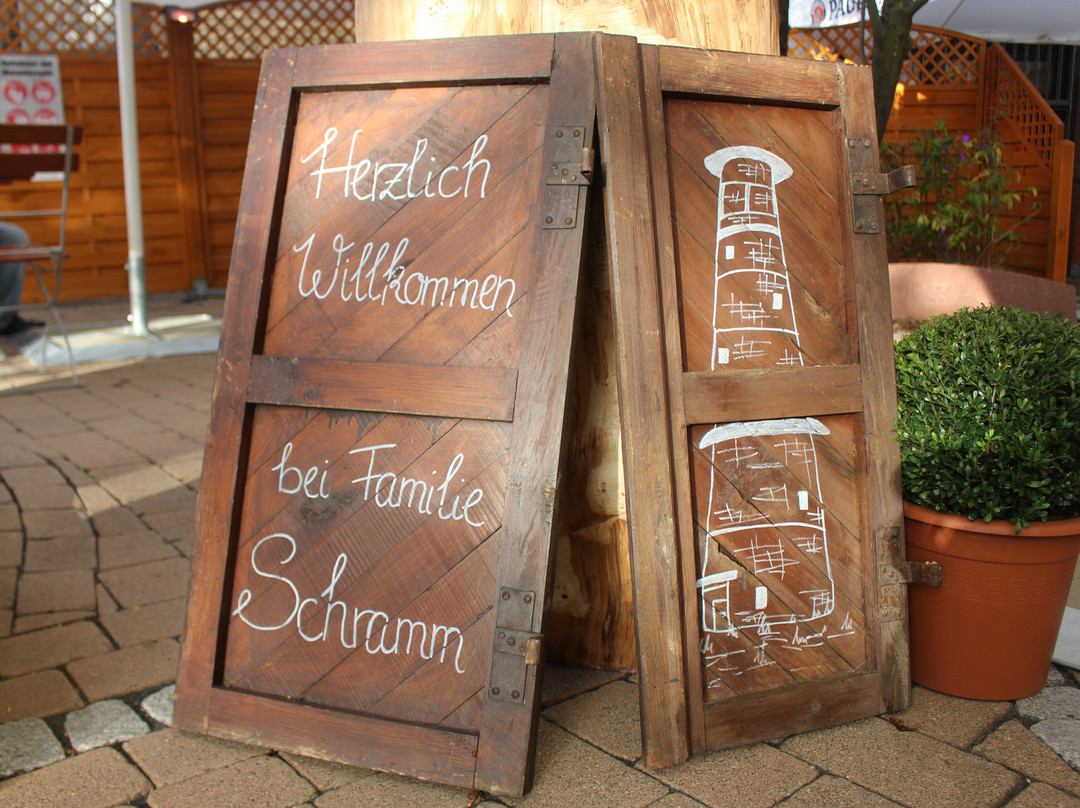 Herzlich
Willkommen
bei Familie
Schramm